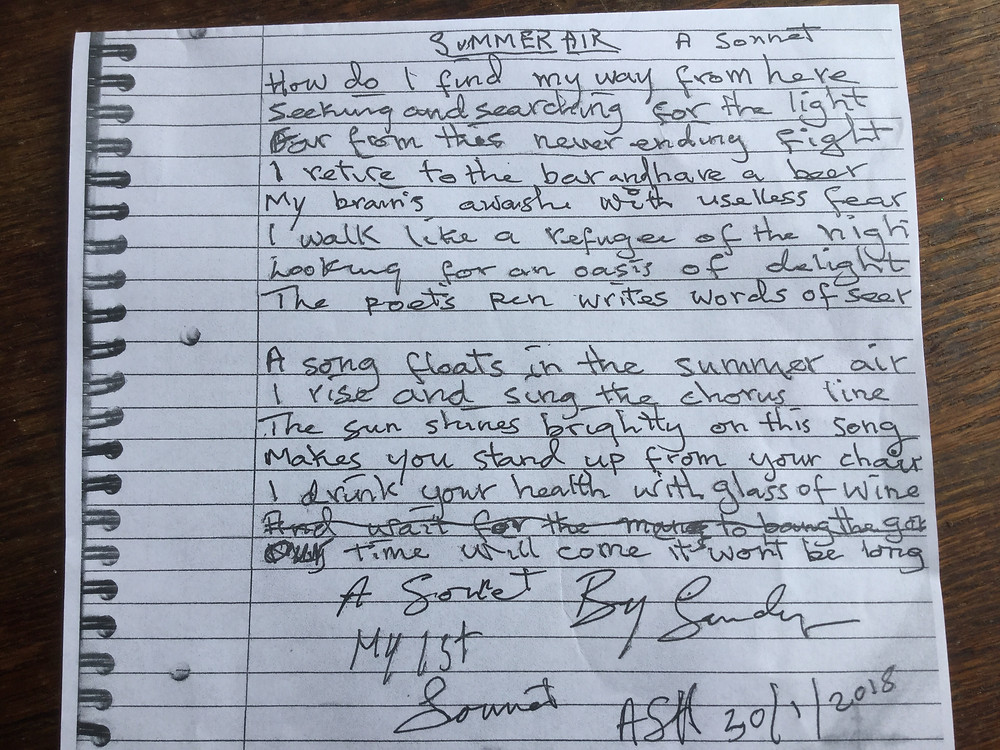 SUMMER AIR A Sonnet
How do I find my way from here
Seeking and searching for the light
Far from this never ending fight
I retire to the bar and have a beer
My brain's awash with useless fear
I walk like a refugee of the nigh
Looking for an oasis of delight
The poet's pen writes words of seer
A song floats in the summer air
I rise and sing the chorus line
The sun shines brightly on this song
Makes you stand up from your chair
I drink your health with glass of wine
And wait for the man to bang the
time will come it wont be long
A Sonnet By Sandy
My 1st
Sonnet ASH 30/1/2018